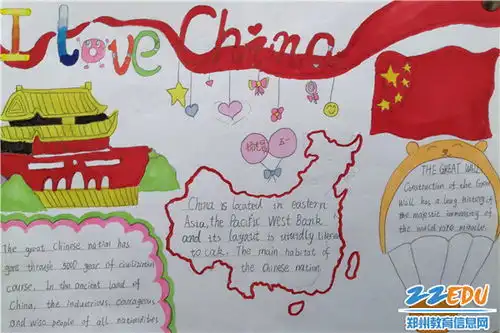 I love China
快乐 五一
China is located in eastern
Asia, the Pacific West Bank
and its layout is
to cock. The main habitat of
the Chinese nation.
THE GREAT WALL
Construction of the
Wall has a long history of
the majestic
the world
The great Chinese nation has
gone through 5000 year of civilization
course. In the ancient land of
China, the industrious, courageous
and wise people of all nationalities
ZZEDU
郑州教育信息网